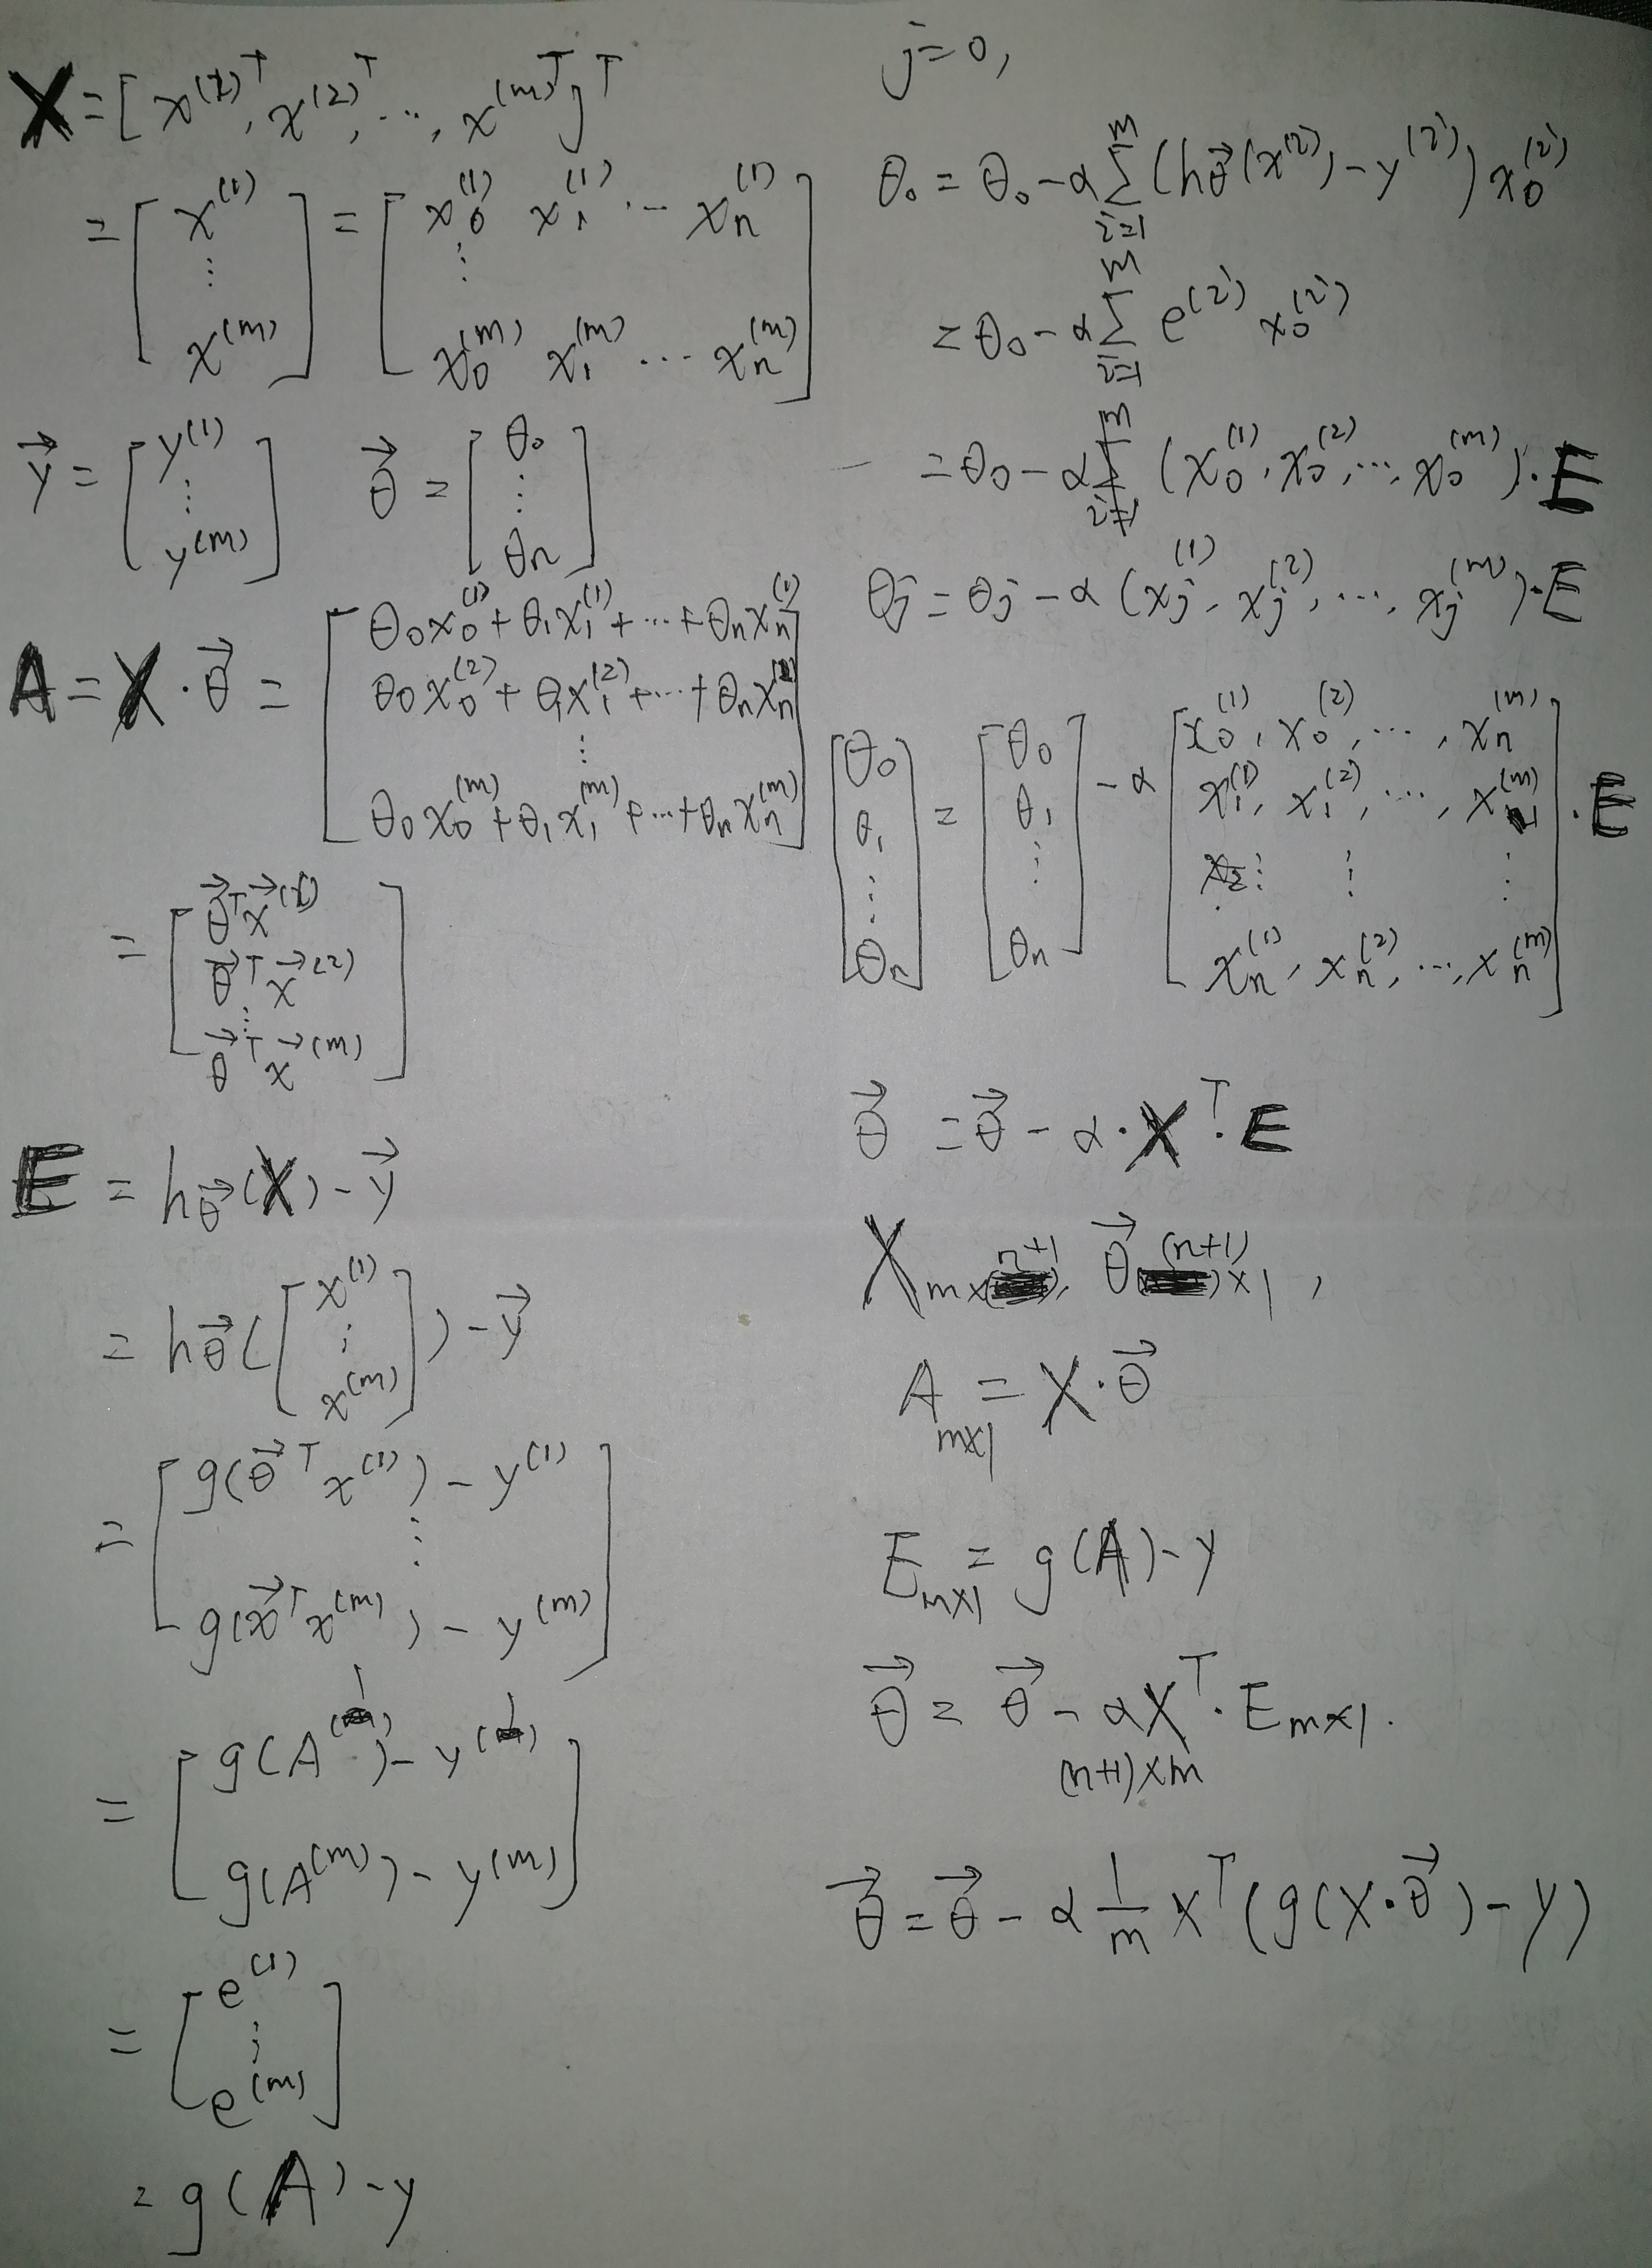 X = [x^(1)^T, x^(2)^T, ..., x^(m)^T]^T
= [x^(1) ⋮ x^(m)] = [x_0^(1) x_1^(1) ... x_n^(1) ⋮ x_0^(m) x_1^(m) ... x_n^(m)]
y⃗ = [y^(1) ⋮ y^(m)] θ⃗ = [θ_0 ⋮ θ_n]
A = X · θ⃗ = [θ_0 x_0^(1) + θ_1 x_1^(1) + ... + θ_n x_n^(1)
θ_0 x_0^(2) + θ_1 x_1^(2) + ... + θ_n x_n^(2)
⋮
θ_0 x_0^(m) + θ_1 x_1^(m) + ... + θ_n x_n^(m)]
= [θ⃗^T x⃗^(1)
θ⃗^T x⃗^(2)
⋮
θ⃗^T x⃗^(m)]
E = h_θ⃗(X) - y⃗
= h_θ⃗([x^(1) ⋮ x^(m)]) - y⃗
= [g(θ⃗^T x^(1)) - y^(1)
⋮
g(x⃗^T x^(m)) - y^(m)]
= [g(A^(1)) - y^(1)
g(A^(m)) - y^(m)]
= [e^(1)
⋮
e^(m)]
= g(A) - y
j = 0,
θ_0 = θ_0 - α Σ_{i=1}^m (h_θ⃗(x^(i)) - y^(i)) x_0^(i)
= θ_0 - α Σ_{i=1}^m e^(i) x_0^(i)
= θ_0 - α (x_0^(1), x_0^(2), ..., x_0^(m)) · E
θ_j = θ_j - α (x_j^(1), x_j^(2), ..., x_j^(m)) · E
[θ_0 θ_1 ⋮ θ_n] = [θ_0 θ_1 ⋮ θ_n] - α [x_0^(1), x_0^(2), ..., x_n^(m)
x_1^(1), x_1^(2), ..., x_1^(m)
⋮ ⋮ ⋮
x_n^(1), x_n^(2), ..., x_n^(m)] · E
θ⃗ = θ⃗ - α · X^T · E
X_{m×(n+1)}, θ⃗_{(n+1)×1},
A_{m×1} = X · θ⃗
E_{m×1} = g(A) - y
θ⃗ = θ⃗ - α X^T · E_{m×1}.
(n+1)×m
θ⃗ = θ⃗ - α 1/m X^T (g(X · θ⃗) - y)